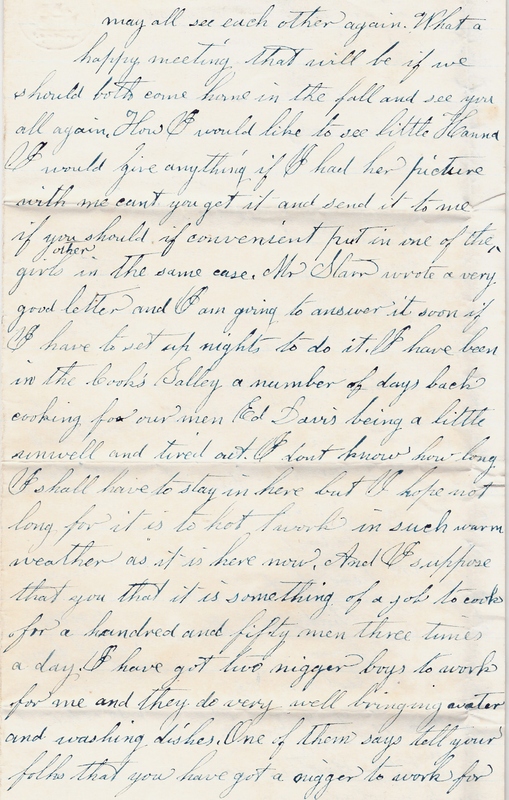 may all see each other again. What a
happy meeting that will be if we
should both come home in the fall and see you
all again. How I would like to see little Hanna
I would give anything if I had her picture
with me cant you get it and send it to me
if you should if convenient put in one of the
other
girls in the same case. Mr Starr wrote a very
good letter and I am going to answer it soon if
I have to set up nights to do it. I have been
in the Cook's Galley a number of days back
cooking for our men Ed Davis being a little
unwell and tired out. I dont know how long
I shall have to stay in here but I hope not
long for it is to hot work in such warm
weather as it is here now. And I suppose
that you that it is something of a job to cook
for a hundred and fifty men three times
a day. I have got two nigger boys to work
for me and they do very well bringing water
and washing dishes. One of them says tell your
folks that you have got a nigger to work for